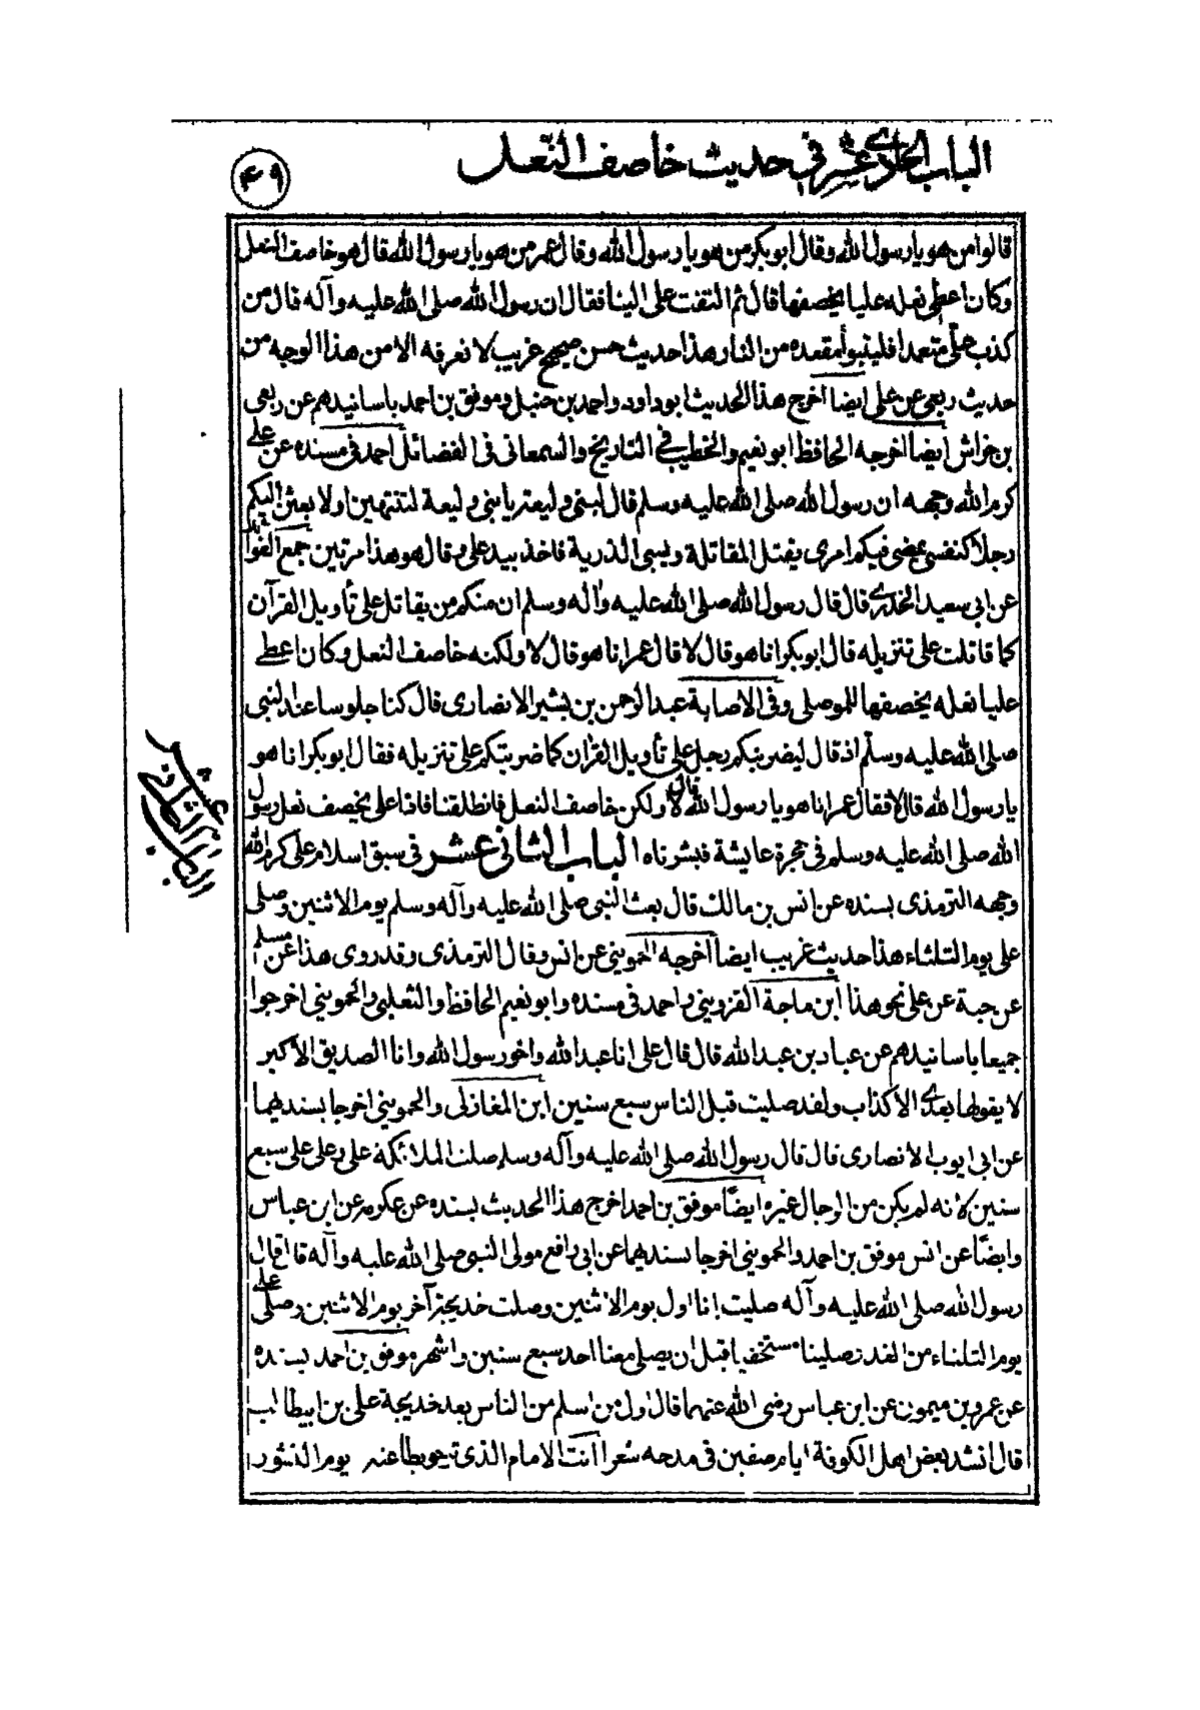 الباب الحادي عشر في حديث خاصف النعل
٤٩
قالوا من هو يا رسول الله وقال ابو بكر من هو يا رسول الله وقال عمر من هو يا رسول الله قال هو خاصف النعل
وكان اعطى نعله عليا يخصفها قال ثم التفت على الينا فقال ان رسول الله صلى الله عليه وآله قال من
كذب على متعمدا فليتبوأ مقعده من النار هذا حديث حسن صحيح غريب لا نعرفه الا من هذا الوجه من
حديث ربعي عن على ايضا اخرج هذا الحديث ابو داود واحمد بن حنبل وموفق بن احمد باسانيدهم عن ربعي
بن خراش ايضا اخرجه الحافظ ابو نعيم والخطيب في التاريخ والسمعاني في الفضائل احمد في مسنده عن علي
كرم الله وجهه ان رسول الله صلى الله عليه وسلم قال لبني وليعة يا بني وليعة لتنتهين او لا بعثن اليكم
رجلا كنفسي يمضي فيكم امري يقتل المقاتلة ويسبي الذرية فاخذ بيد على وقال هو هذا مرتين جمع الفوائد
عن ابي سعيد الخدري قال قال رسول الله صلى الله عليه وآله وسلم ان منكم من يقاتل على تأويل القرآن
كما قاتلت على تنزيله قال ابو بكر انا هو قال لا قال عمر انا هو قال لا ولكنه خاصف النعل وكان اعطى
عليا نعله يخصفها للموصلي وفي الاصابة عبد الرحمن بن بشير الانصاري قال كنا جلوسا عند النبي
صلى الله عليه وسلم اذ قال ليضربنكم رجل على تأويل القرآن كما ضربتكم على تنزيله فقال ابو بكر انا هو
يا رسول الله قال لا فقال عمر انا هو يا رسول الله قال لا ولكن خاصف النعل فانطلقنا فاذا على يخصف نعل رسول
الله صلى الله عليه وسلم في حجرة عايشة فبشرناه الباب الثاني عشر في سبق اسلام على كرم الله
وجهه الترمذي بسنده عن انس بن مالك قال بعث النبي صلى الله عليه وآله وسلم يوم الاثنين وصلى
على يوم الثلثاء هذا حديث غريب ايضا اخرجه الحمويني عن انس وقال الترمذي وقد روى هذا عن مسلم
عن حبة عن على نحو هذا ابن ماجة القزويني واحمد في مسنده وابو نعيم الحافظ والثعلبي والحمويني اخرجوا
جميعا باسانيدهم عن عباد بن عبد الله قال قال على انا عبد الله واخو رسول الله وانا الصديق الاكبر
لا يقولها بعدي الا كذاب ولقد صليت قبل الناس سبع سنين ابن المغازلي والحمويني اخرجا بسنديهما
عن ابي ايوب الانصاري قال قال رسول الله صلى الله عليه وآله وسلم صلت الملائكة على وعلى على سبع
سنين لانه لم يكن من الرجال غيره ايضًا موفق بن احمد اخرج هذا الحديث بسنده عن عكرمه عن ابن عباس
وايضًا عن انس موفق بن احمد والحمويني اخرجا بسنديهما عن ابي رافع مولى النبي صلى الله عليه وآله قال قال
رسول الله صلى الله عليه وآله صليت انا اول يوم الاثنين وصلت خديجة آخر يوم الاثنين وصلى علي
يوم الثلثاء من الغد وصلينا مستخفيا قبل ان يصلي معنا احد سبع سنين واشهر موفق بن احمد بسنده
عن عمرو بن ميمون عن ابن عباس رضي الله عنهما قال اول من اسلم من الناس بعد خديجة على بن ابيطالب
قال انشد بعض اهل الكوفة ايام صفين في مدحه شعرا انت الامام الذي نرجو بطاعته يوم النشور
الباب الثاني عشر